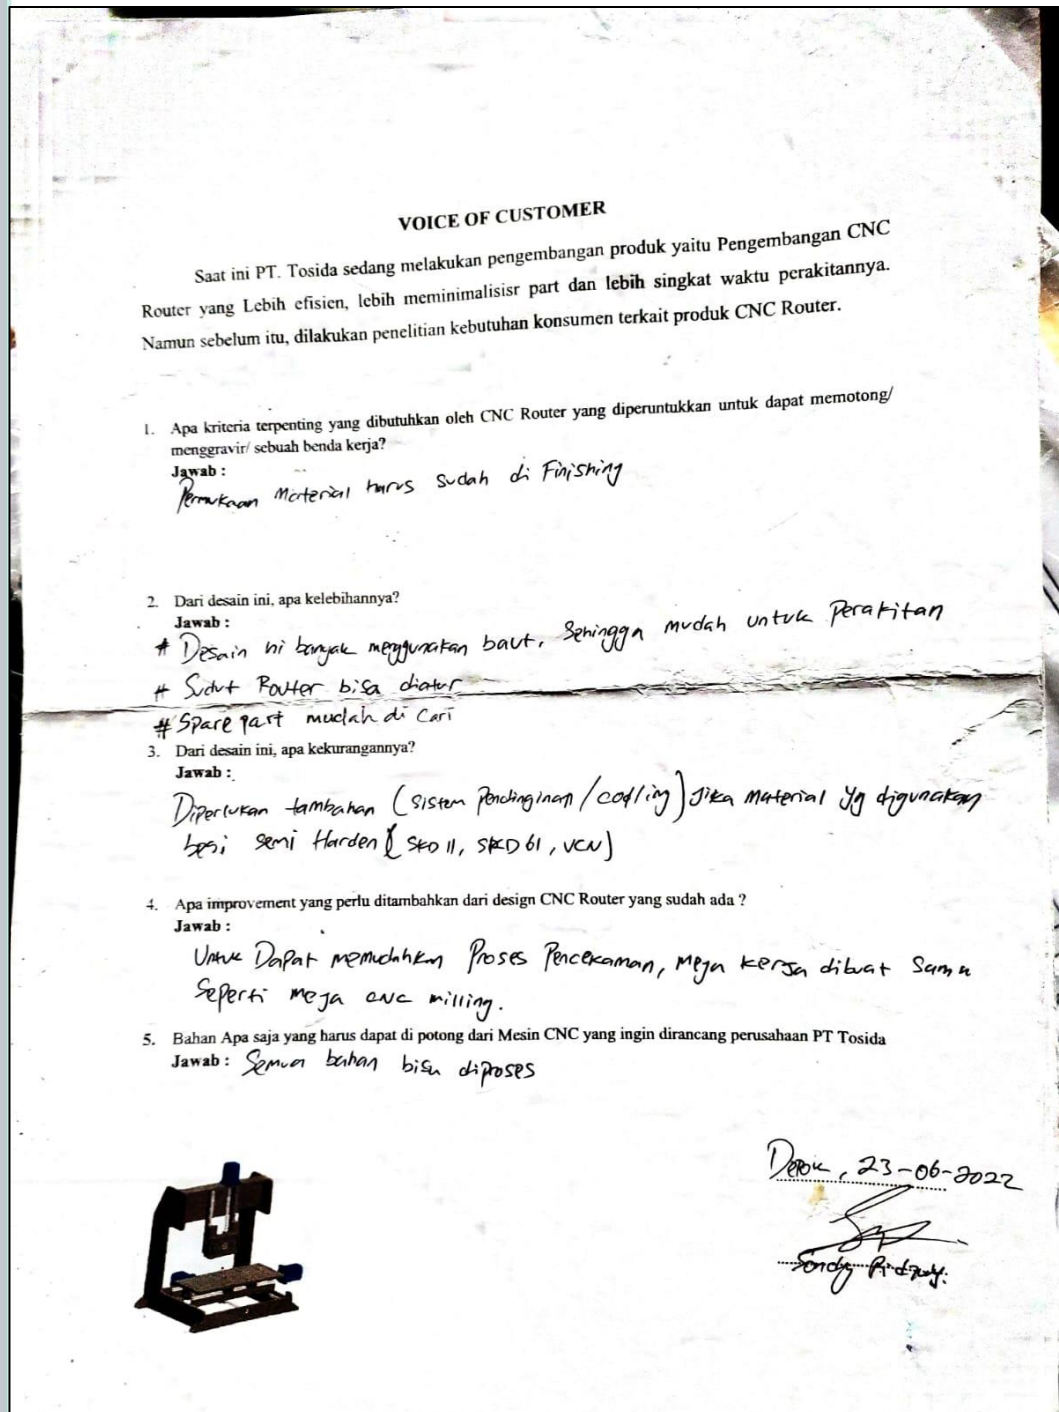 VOICE OF CUSTOMER
Saat ini PT. Tosida sedang melakukan pengembangan produk yaitu Pengembangan CNC
Router yang Lebih efisien, lebih meminimalisisr part dan lebih singkat waktu perakitannya.
Namun sebelum itu, dilakukan penelitian kebutuhan konsumen terkait produk CNC Router.
1. Apa kriteria terpenting yang dibutuhkan oleh CNC Router yang diperuntukkan untuk dapat memotong/
menggravir/ sebuah benda kerja?
Jawab :
Permukaan Material harus sudah di Finishing
2. Dari desain ini, apa kelebihannya?
Jawab :
# Desain ini banyak menggunakan baut, Sehingga mudah untuk Perakitan
# Sudut Router bisa diatur
# Spare part mudah di Cari
3. Dari desain ini, apa kekurangannya?
Jawab :
Diperlukan tambahan (sistem Pendinginan / cooling) Jika material yg digunakan
besi semi Harden ( SKD 11, SKD 61, VCN)
4. Apa improvement yang perlu ditambahkan dari design CNC Router yang sudah ada ?
Jawab :
Untuk Dapat memudahkan Proses Pencekaman, Meja kerja dibuat Sama
Seperti meja cnc milling.
5. Bahan Apa saja yang harus dapat di potong dari Mesin CNC yang ingin dirancang perusahaan PT Tosida
Jawab : Semua bahan bisa diproses
Depok, 23-06-2022